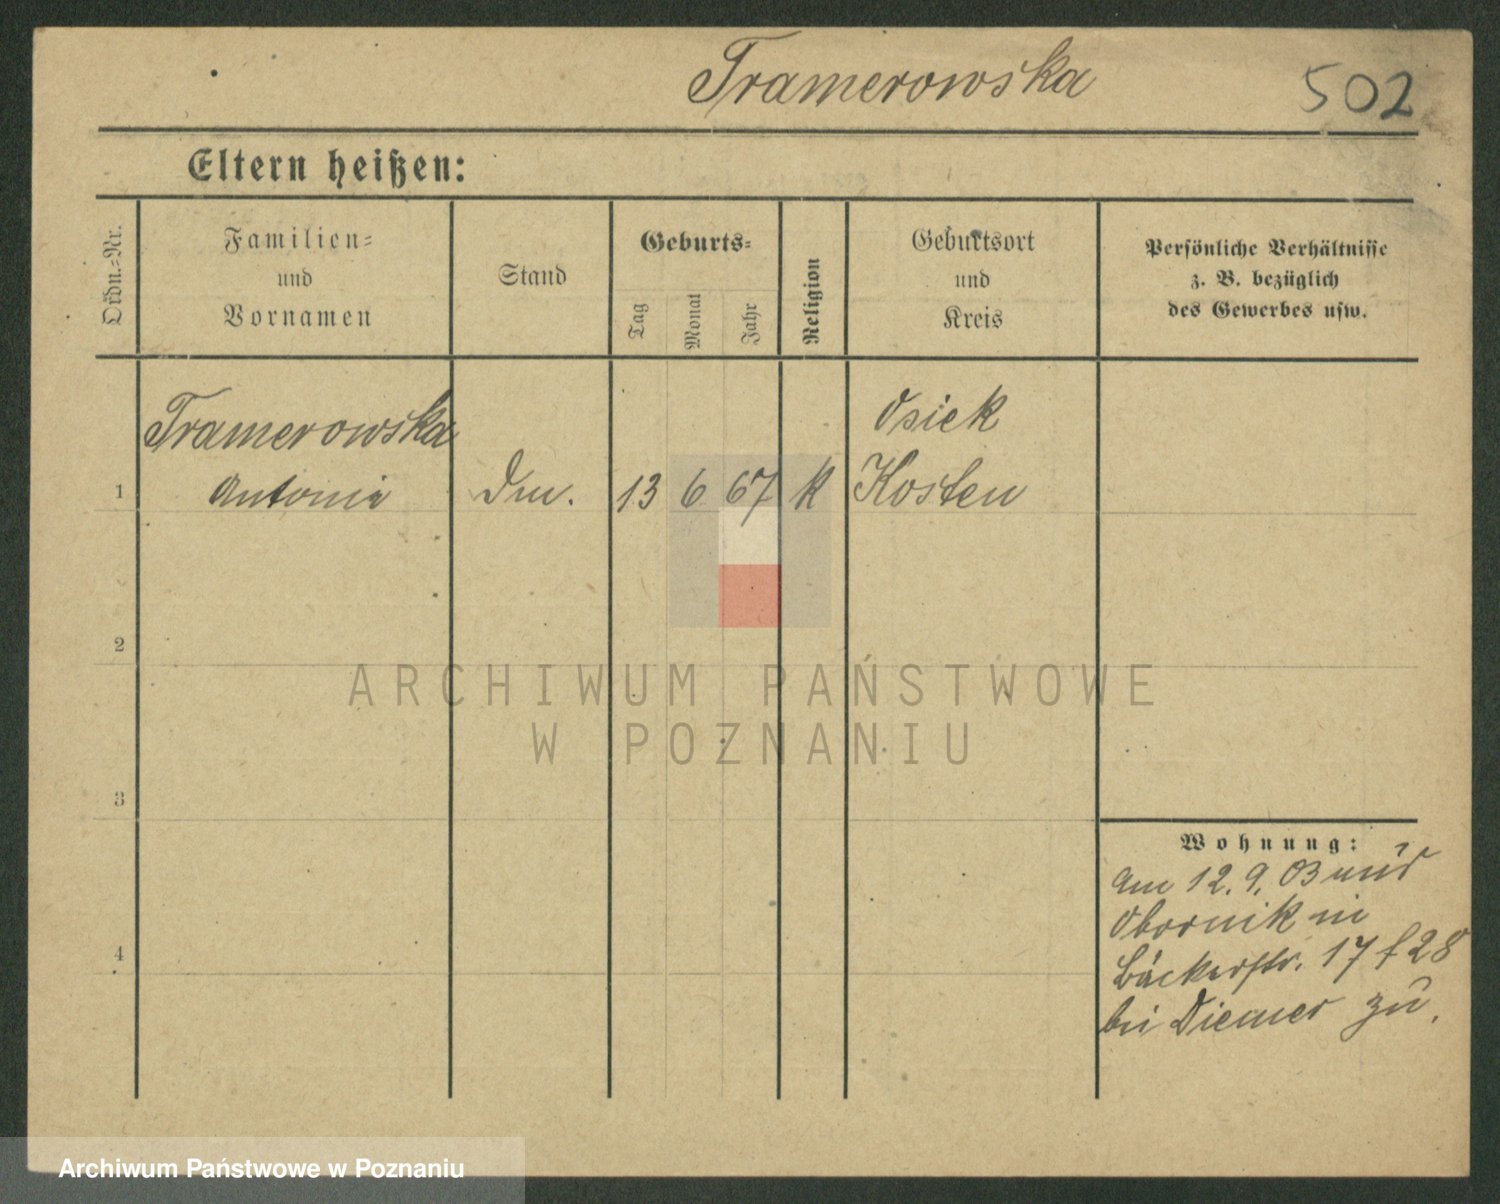 Tramerowska
502
Eltern heißen:
Ordn.-Nr.
Familien-
und
Vornamen
Stand
Geburts-
Tag
Monat
Jahr
Religion
Geburtsort
und
Kreis
Persönliche Verhältnisse
z. B. bezüglich
des Gewerbes usw.
Tramerowska
Osiek
1
Antonie
13
6
67
k
Kosten
2
ARCHIWUM PAŃSTWOWE
W POZNANIU
3
Wohnung:
am 12. 9. 03
Obornik in
Bäckerstr. 17
bei Diemer zu.
4
Archiwum Państwowe w Poznaniu